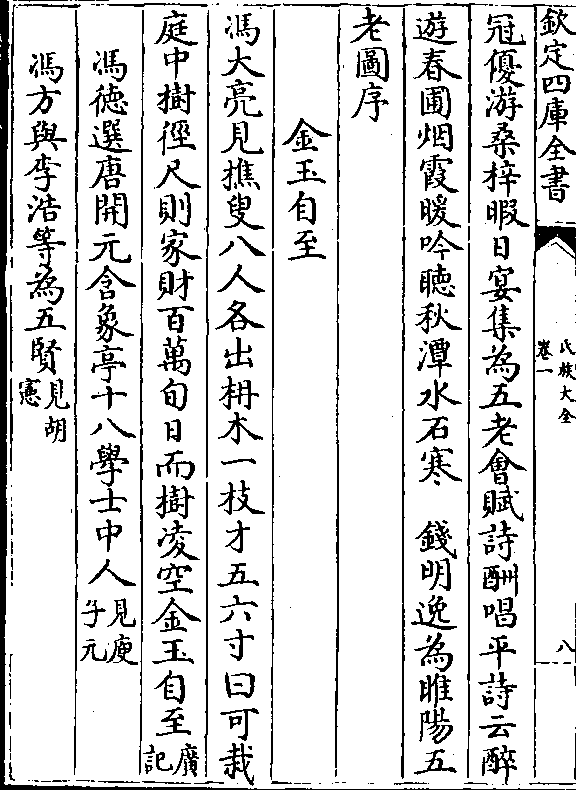 欽定四庫全書
氏族大全
卷一
八
冠優游桑梓暇日宴集為五老會賦詩酬唱平詩云醉
遊春圃烟霞暖吟聽秋潭水石寒　錢明逸為睢陽五
老圖序
金玉自至
馮大亮見樵叟八人各出枏木一枝才五六寸曰可栽
庭中樹徑尺則家財百萬旬日而樹凌空金玉自至廣記
馮德選唐開元含象亭十八學士中人見庾子元
馮方與李浩等為五賢見胡憲